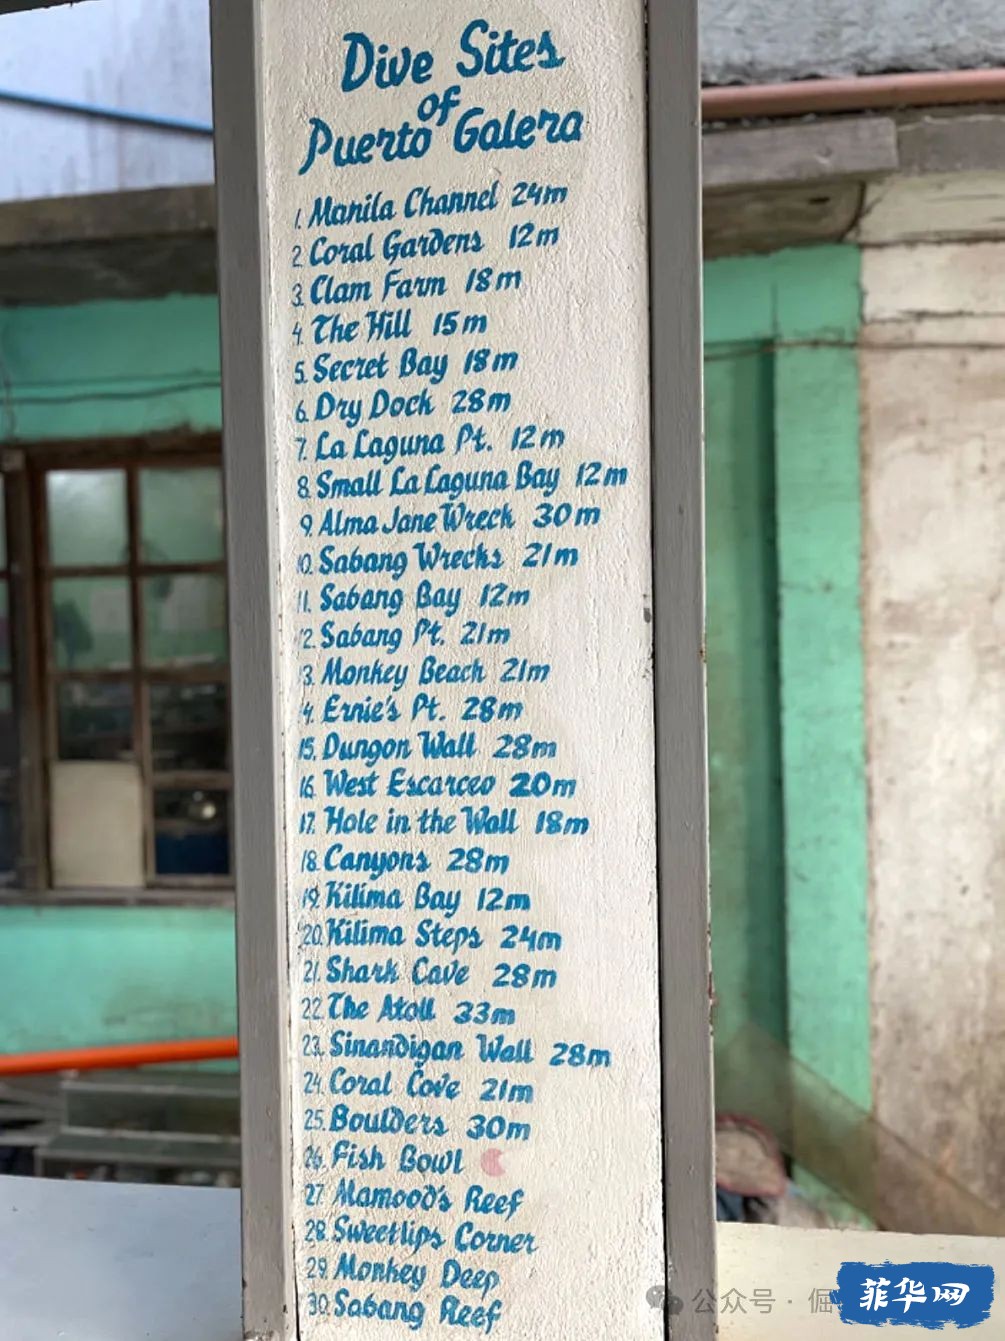 Dive Sites
of
Puerto Galera
1. Manila Channel 24m
2 Coral Gardens 12m
3. Clam Farm 18m
4. The Hill 15m
5. Secret Bay 18m
6. Dry Dock 28m
7. La Laguna Pt. 12m
8 Small La Laguna Bay 12m
9. Alma Jane Wreck 30m
10. Sabang Wrecks 21m
11. Sabang Bay 12m
12. Sabang Pt. 21m
13. Monkey Beach 21m
14. Ernie's Pt. 28m
15. Dungon Wall 28m
16. West Escarceo 20m
17. Hole in the Wall 18m
18. Canyons 28m
19. Kilima Bay 12m
20. Kilima Steps 24m
21. Shark Cave 28m
22. The Atoll 33m
23. Sinandigan Wall 28m
24. Coral Cove 21m
25. Boulders 30m
26. Fish Bowl
27. Mamood's Reef
28. Sweetlips Corner
29. Monkey Deep
30. Sabang Reef
公众号 · 倔
菲华网